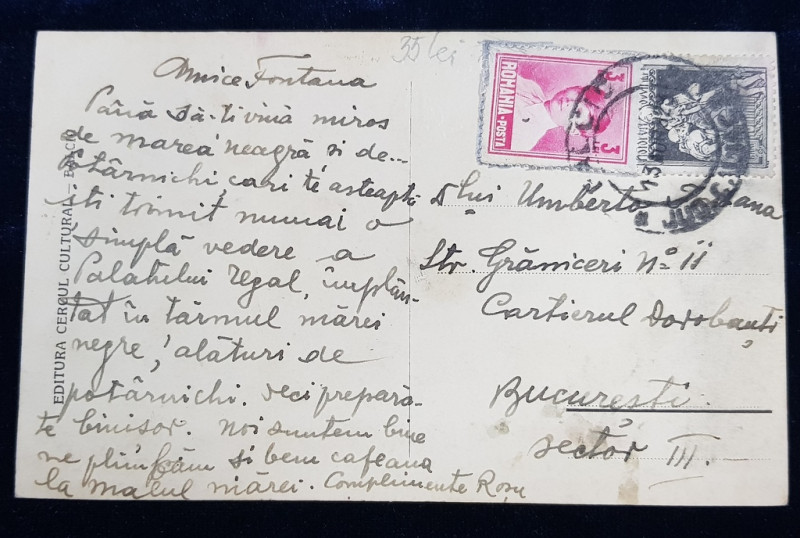 35 lei
Amice Fontana
Până să-ți vină miros
de marea neagră și de...
potârnichi, cari te așteaptă
îți trimit numai o
simplă vedere a
Palatului regal, implân-
tat în țărmul mărei
negre, alături de
potârnichi. deci prepară-
te binișor. Noi suntem bine
ne plimbăm și bem cafeaua
la malul mărei. Complimente Roșu
EDITURA CERCUL CULTURAL –
ROMANIA-POSTA
3 3
Dlui Umberto
Str. Grăniceri No 11
Cartierul Dorobanți
București
sector III.-